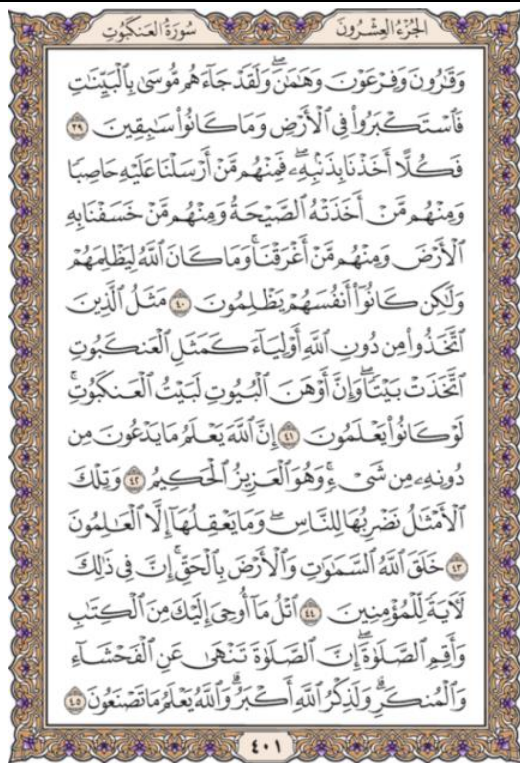 سُورَةُ العَنكَبُوتِ
الجُزْءُ العِشْرُونَ
وَقَٰرُونَ وَفِرْعَوْنَ وَهَٰمَٰنَۖ وَلَقَدْ جَآءَهُم مُّوسَىٰ بِٱلْبَيِّنَٰتِ
فَٱسْتَكْبَرُوا۟ فِى ٱلْأَرْضِ وَمَا كَانُوا۟ سَٰبِقِينَ ٣٩
فَكُلًّا أَخَذْنَا بِذَنۢبِهِۦۖ فَمِنْهُم مَّنْ أَرْسَلْنَا عَلَيْهِ حَاصِبًا
وَمِنْهُم مَّنْ أَخَذَتْهُ ٱلصَّيْحَةُ وَمِنْهُم مَّنْ خَسَفْنَا بِهِ
ٱلْأَرْضَ وَمِنْهُم مَّنْ أَغْرَقْنَاۚ وَمَا كَانَ ٱللَّهُ لِيَظْلِمَهُمْ
وَلَٰكِن كَانُوٓا۟ أَنفُسَهُمْ يَظْلِمُونَ ٤٠ مَثَلُ ٱلَّذِينَ
ٱتَّخَذُوا۟ مِن دُونِ ٱللَّهِ أَوْلِيَآءَ كَمَثَلِ ٱلْعَنكَبُوتِ
ٱتَّخَذَتْ بَيْتًاۖ وَإِنَّ أَوْهَنَ ٱلْبُيُوتِ لَبَيْتُ ٱلْعَنكَبُوتِۚ
لَوْ كَانُوا۟ يَعْلَمُونَ ٤١ إِنَّ ٱللَّهَ يَعْلَمُ مَا يَدْعُونَ مِن
دُونِهِۦ مِن شَىْءٍۚ وَهُوَ ٱلْعَزِيزُ ٱلْحَكِيمُ ٤٢ وَتِلْكَ
ٱلْأَمْثَٰلُ نَضْرِبُهَا لِلنَّاسِۖ وَمَا يَعْقِلُهَآ إِلَّا ٱلْعَٰلِمُونَ
٤٣ خَلَقَ ٱللَّهُ ٱلسَّمَٰوَٰتِ وَٱلْأَرْضَ بِٱلْحَقِّۚ إِنَّ فِى ذَٰلِكَ
لَءَايَةً لِّلْمُؤْمِنِينَ ٤٤ ٱتْلُ مَآ أُوحِىَ إِلَيْكَ مِنَ ٱلْكِتَٰبِ
وَأَقِمِ ٱلصَّلَوٰةَۖ إِنَّ ٱلصَّلَوٰةَ تَنْهَىٰ عَنِ ٱلْفَحْشَآءِ
وَٱلْمُنكَرِۗ وَلَذِكْرُ ٱللَّهِ أَكْبَرُۗ وَٱللَّهُ يَعْلَمُ مَا تَصْنَعُونَ ٤٥
٤٠١